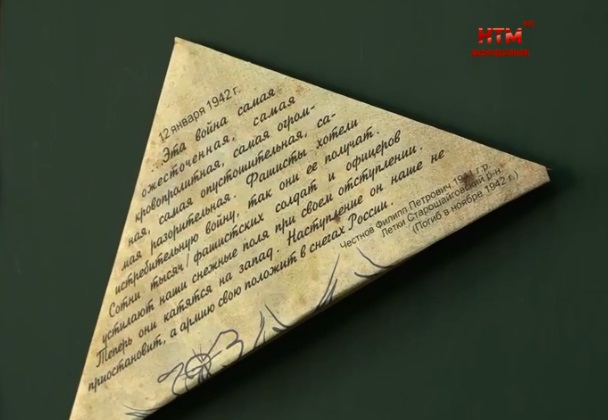 НТМ
12 января 1942 г.
Эта война самая
ожесточенная, самая
кровопролитная, самая огром-
ная, самая опустошительная, са-
мая разорительная. Фашисты хотели
истребительную войну, так они ее получат.
Сотни тысяч фашистских солдат и офицеров
устилают наши снежные поля при своем отступлении.
Теперь они катятся на запад. Наступление он наше не
приостановит, а армию свою положит в снегах России.
Честнов Филипп Петрович, г.р.
Летки Старошайговский р-н
(Погиб в ноябре 1942 г.)